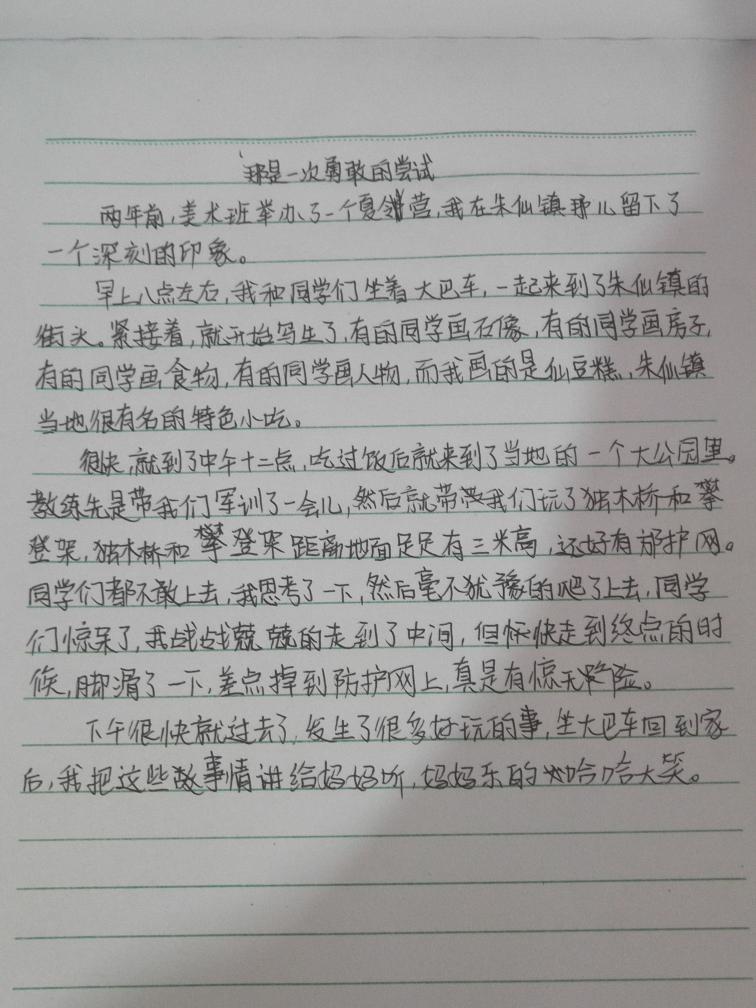 那是一次勇敢的尝试
两年前，美术班举办了一个夏令营，我在朱仙镇那儿留下了
一个深刻的印象。
早上八点左右，我和同学们坐着大巴车，一起来到了朱仙镇的
街头。紧接着，就开始写生了，有的同学画石像，有的同学画房子，
有的同学画食物，有的同学画人物，而我画的是仙豆糕，朱仙镇
当地很有名的特色小吃。
很快，就到了中午十二点，吃过饭后就来到了当地的一个大公园里。
教练先是带我们军训了一会儿，然后就带我们玩了独木桥和攀
登架，独木桥和攀登架距离地面足足有三米高，还好有防护网。
同学们都不敢上去，我思考了一下，然后毫不犹豫的爬了上去，同学
们惊呆了，我战战兢兢的走到了中间，但快走到终点的时
候，脚滑了一下，差点掉到防护网上，真是有惊无险。
下午很快就过去了，发生了很多好玩的事，坐大巴车回到家
后，我把这些故事情讲给妈妈听，妈妈乐的哈哈大笑。